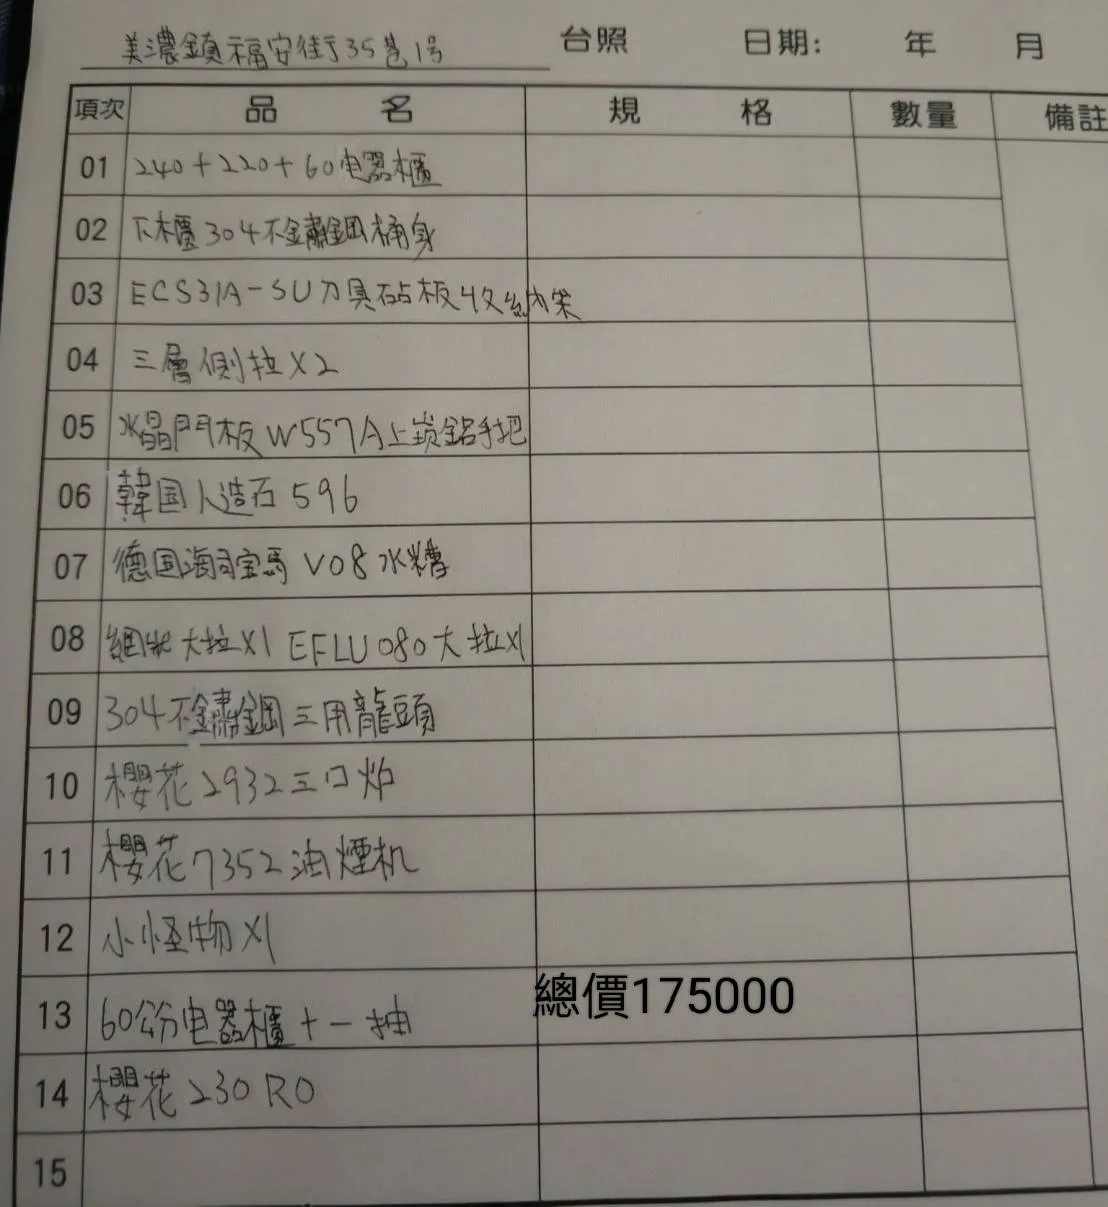 美濃鎮福安街35巷1号 台照 日期: 年 月
項次 品名 規格 數量 備註
01 240+220+60电器櫃
02 下櫃304不鏽鋼桶身
03 ECS31A-SU刀具砧板收納架
04 三層側拉X2
05 水晶門板W557A上崁鋁手把
06 韓国人造石596
07 德国海宝馬V08水槽
08 大拉X1 EFLU080大拉X1
09 304不鏽鋼三用龍頭
10 櫻花2932三口炉
11 櫻花7352油煙机
12 小怪物X1
13 60公分电器櫃+一抽
總價175000
14 櫻花230RO
15